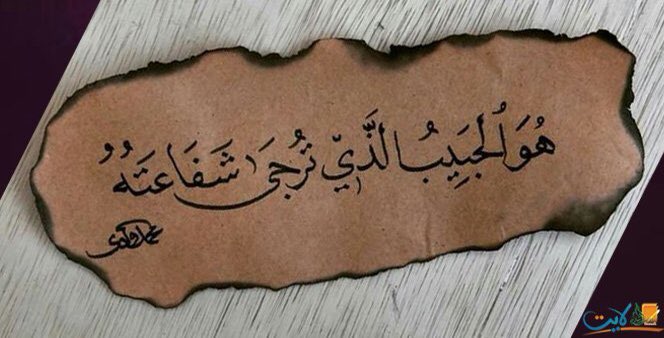 هُوَ الْحَبِيبُ الَّذِي تُرْجَى شَفَاعَتُهُ
لايت